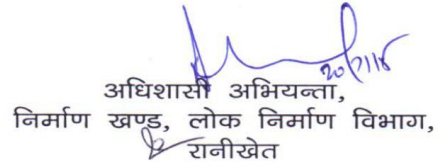 20/7/18
अधिशासी अभियन्ता,
निर्माण खण्ड, लोक निर्माण विभाग,
रानीखेत